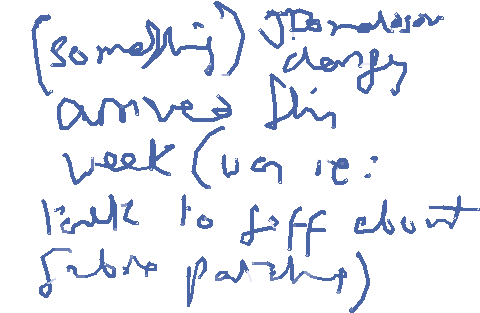 (something) Donaldson
change
arrives this
week (von re:
talk to Jeff about
future patches)